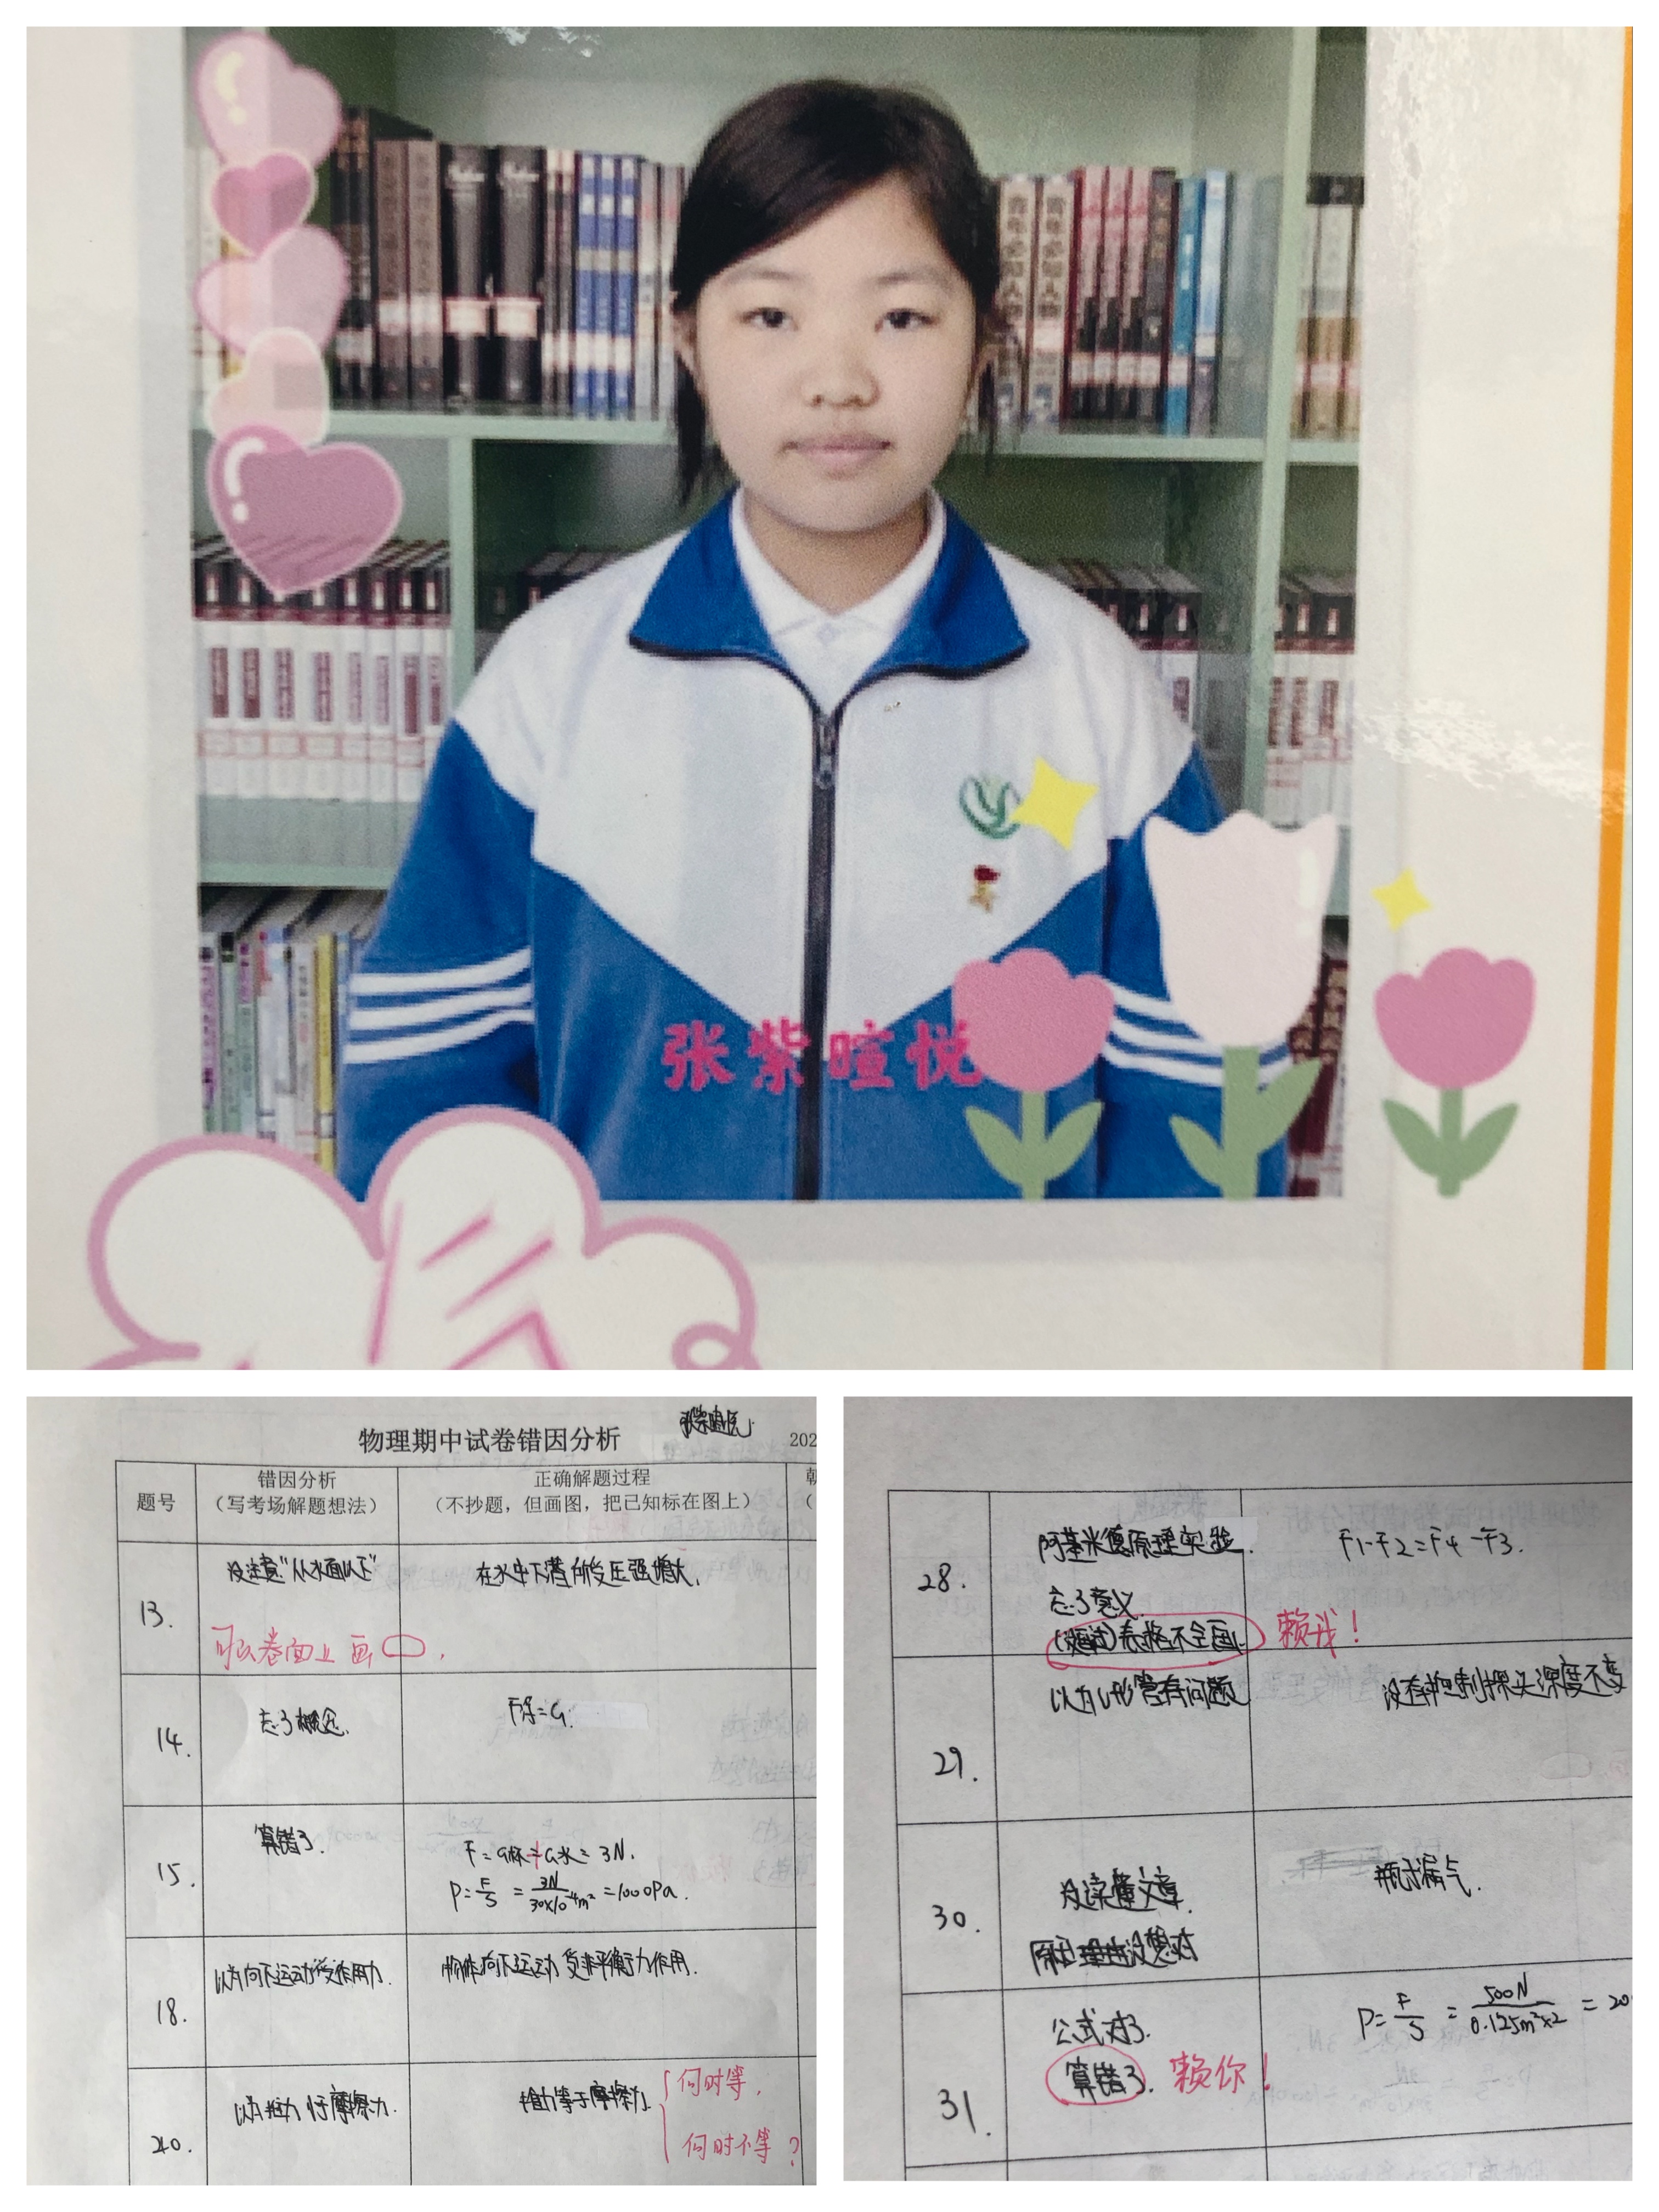 张紫暄悦
物理期中试卷错因分析
202
题号
错因分析
（写考场解题想法）
正确解题过程
（不抄题，但画图，把已知标在图上）
13.
没注意“从水面以下”
在水中下潜所受压强增大.
可以卷面上画
14.
忘了概念.
F浮=G.
15.
算错了.
F=G杯+G水=3N.
P=F/S=3N/30×10⁻⁴m²=1000Pa.
18.
以为向下运动受作用力.
物体向下运动受非平衡力作用.
20.
以为拉力小于摩擦力.
推力等于摩擦力.
何时等,
何时不等?
28.
阿基米德原理实验.
F1-F2=F4-F3.
忘了意义.
表格不全画
赖我!
29.
以为U形管有问题
没有控制探头深度不变
30.
没读懂文章.
没想对
瓶子漏气.
31.
公式对了.
算错了.
赖你!
P=F/S=500N/0.125m²×2=20